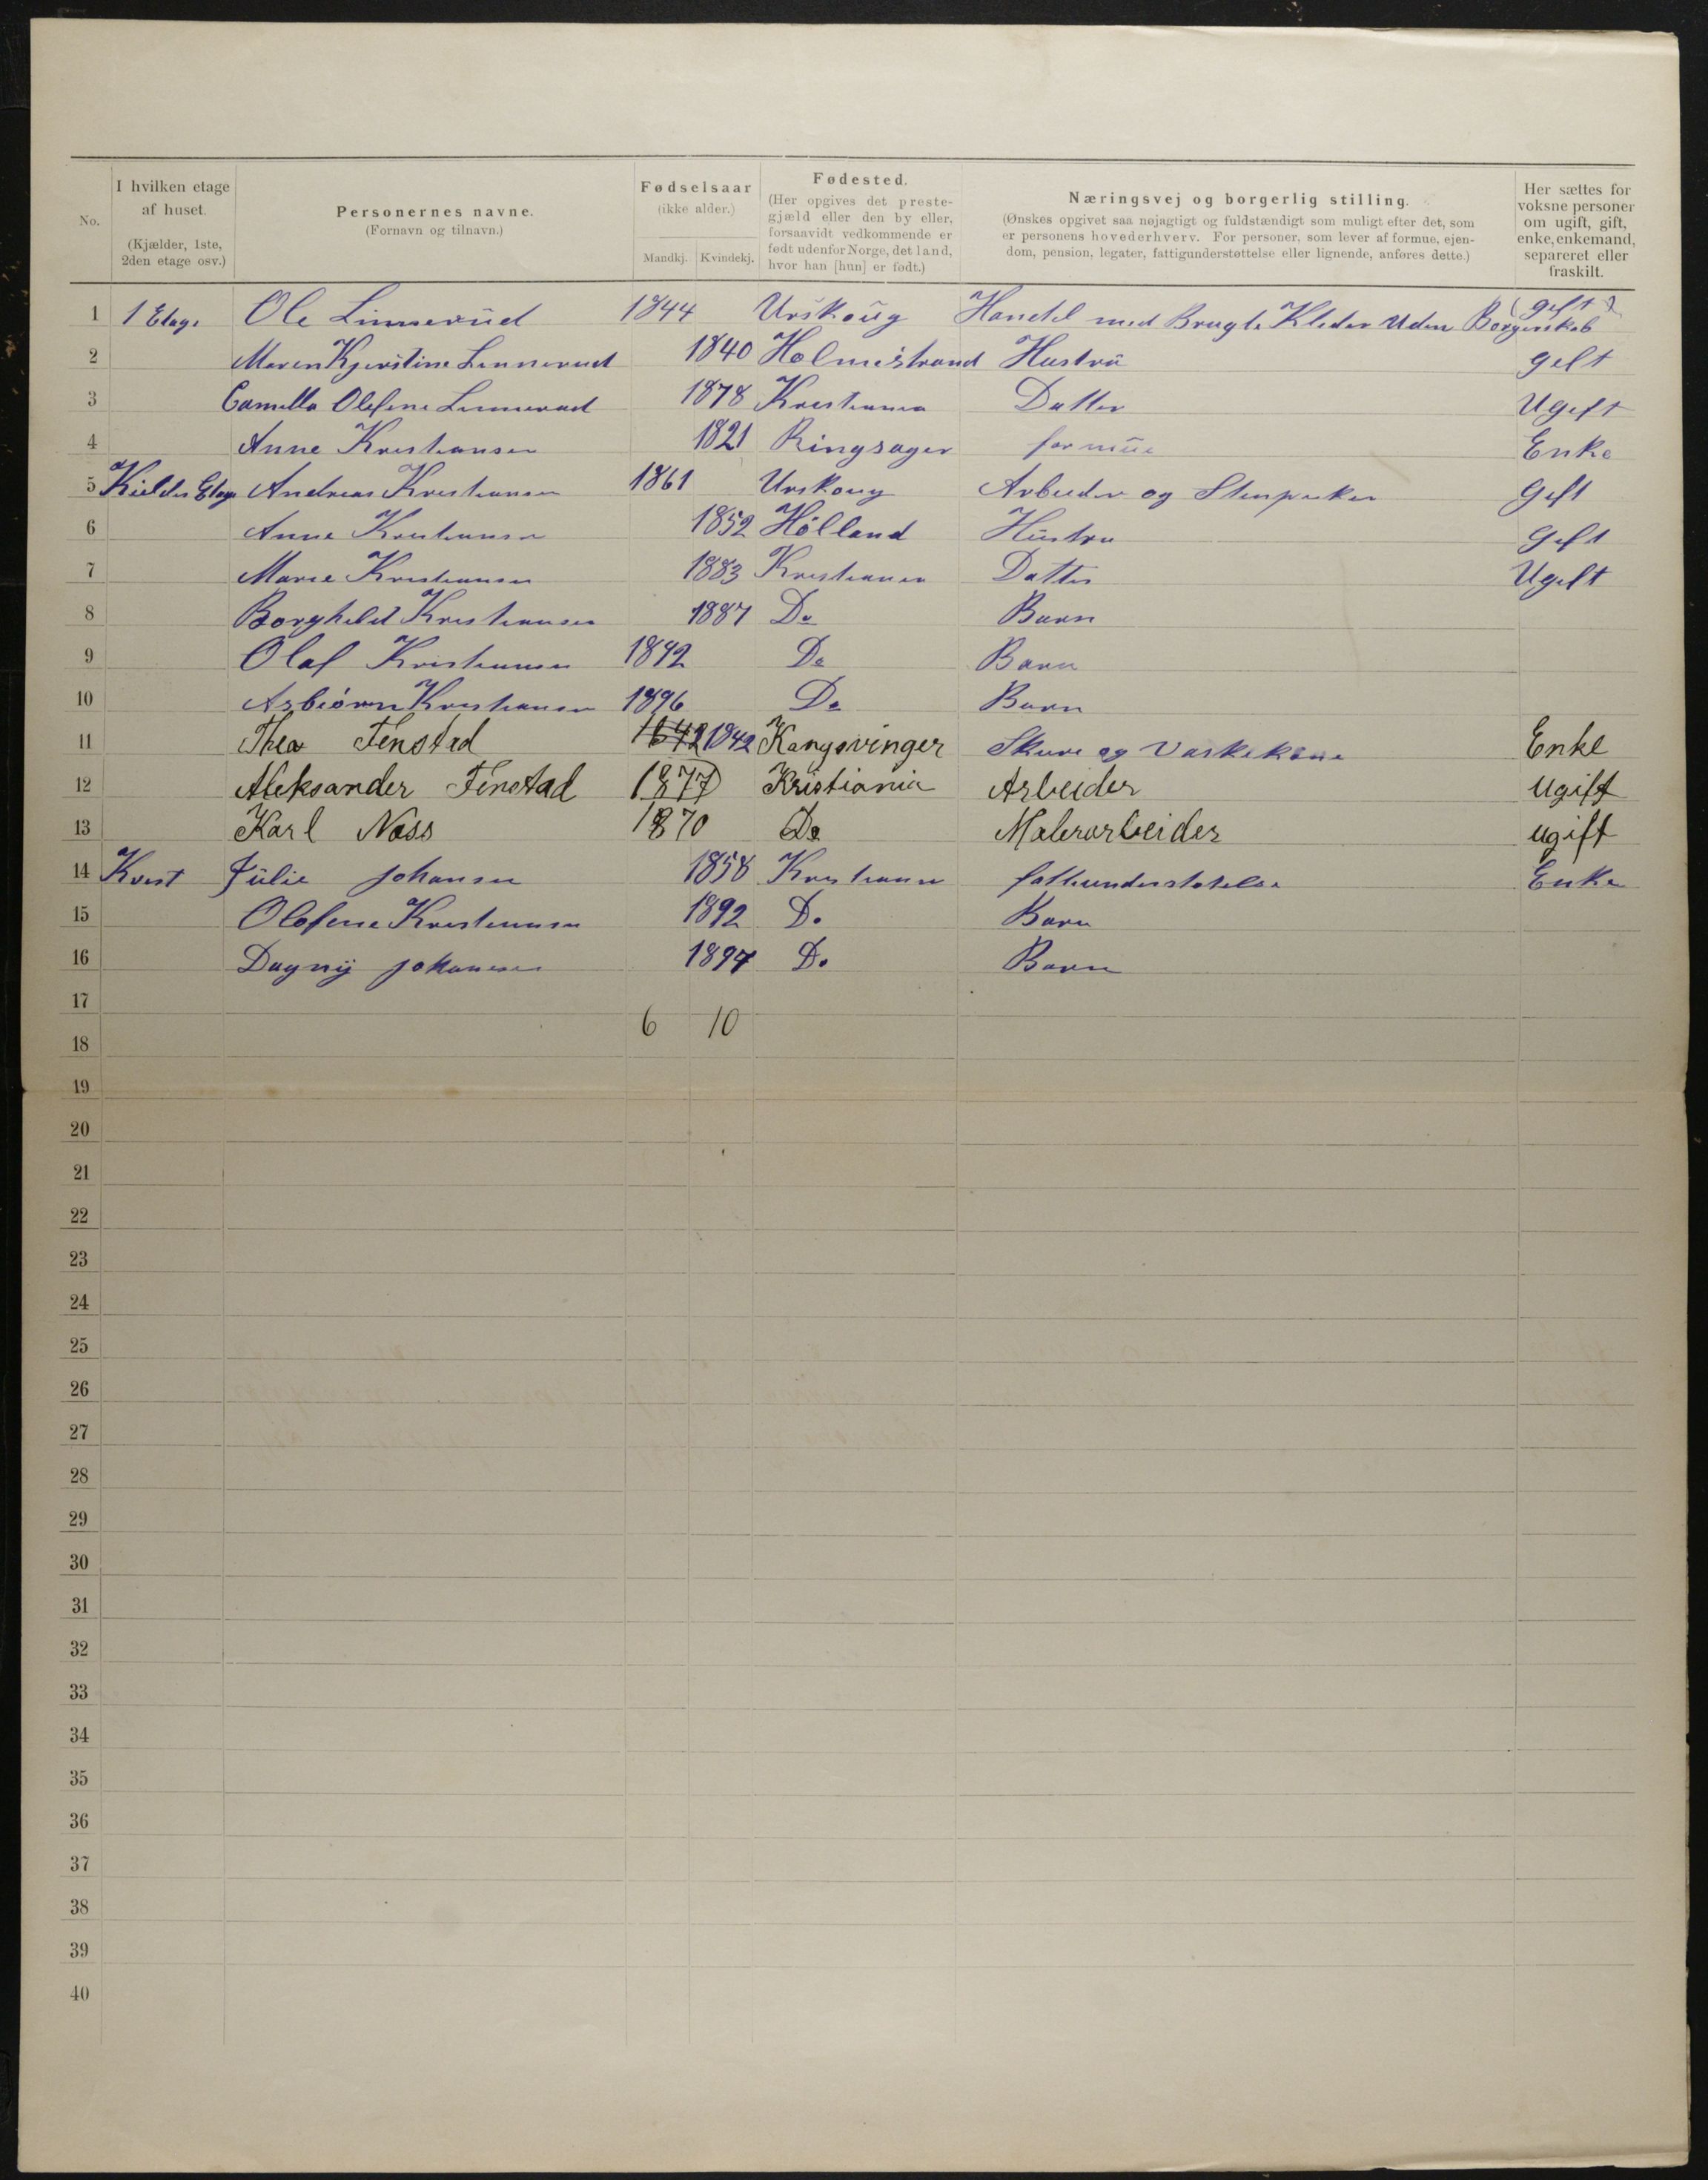 No.
I hvilken etage af huset.
(Kjælder, 1ste, 2den etage osv.)
Personernes navne.
(Fornavn og tilnavn.)
Fødselsaar
(ikke alder.)
Mandkj. Kvindekj.
Fødested.
(Her opgives det preste-
gjæld eller den by eller,
forsaavidt vedkommende er
født udenfor Norge, det land,
hvor han [hun] er født.)
Næringsvej og borgerlig stilling.
(Ønskes opgivet saa nøjagtigt og fuldstændigt som muligt efter det, som
er personens hovederhverv. For personer, som lever af formue, ejen-
dom, pension, legater, fattigunderstøttelse eller lignende, anføres dette.)
Her sættes for
voksne personer
om ugift, gift,
enke, enkemand,
separeret eller
fraskilt.
1 1 Etage Ole Linnerud 1844 Urskoug Handel med Brugte Kleder Uden Borgerskab gift
2 Maren Kjerstine Linnerud 1840 Holmestrand Hustru gift
3 Camilla Olefine Linnerud 1878 Kristiania Datter Ugift
4 Anne Kristiansen 1821 Ringsager formue Enke
5 Kielder Etage Andreas Kristiansen 1861 Urskoug Arbeider og Stenpuker Gift
6 Anne Kristiansen 1852 Hølland Hustru Gift
7 Marie Kristiansen 1883 Kristiania Datter Ugift
8 Borghild Kristiansen 1887 Do Barn
9 Olaf Kristiansen 1892 Do Barn
10 Asbiørn Kristiansen 1896 Do Barn
11 Thea Finstad 1842 1842 Kongsvinger Skure og Vaskekone Enke
12 Aleksander Finstad 1877 Kristiania Arbeider Ugift
13 Karl Næss 1870 Do Malerarbeider ugift
14 Kvist Julie Johansen 1858 Kristiania fattiunderstøtelse Enke
15 Olefine Kristiansen 1892 Do Barn
16 Dagny Johansen 1897 Do Barn
17
6 10
18
19
20
21
22
23
24
25
26
27
28
29
30
31
32
33
34
35
36
37
38
39
40